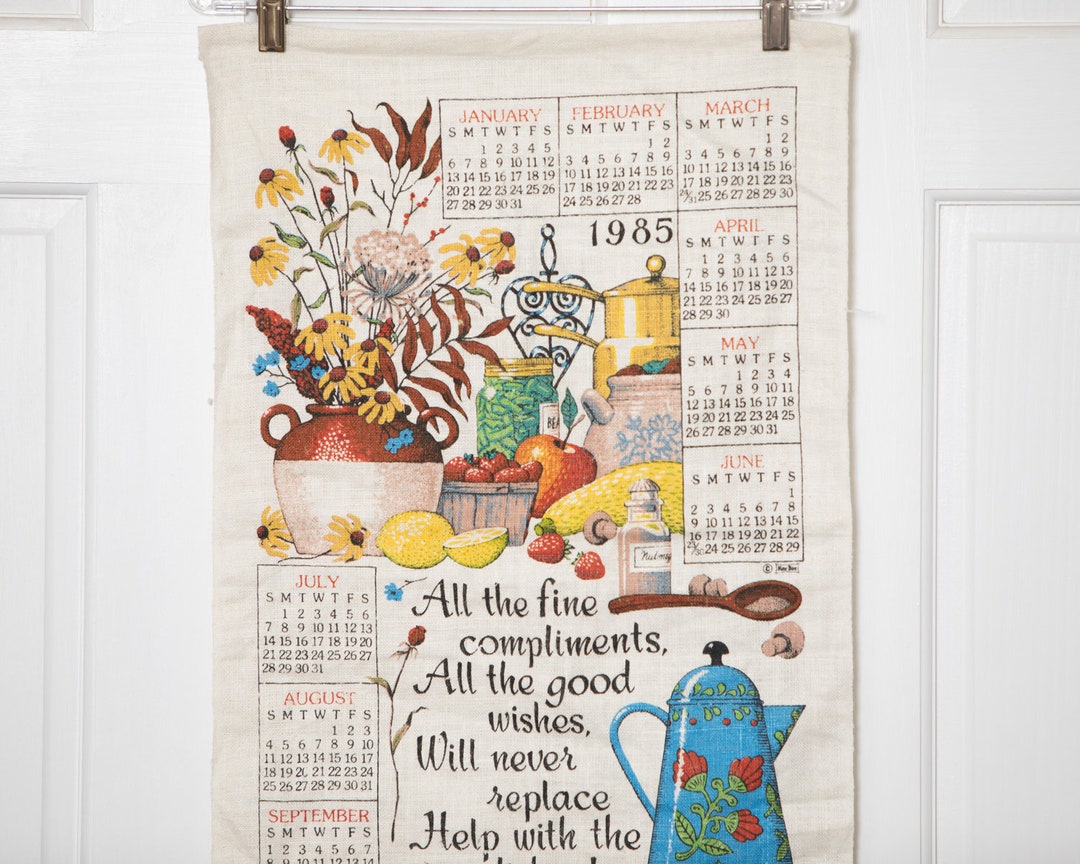 JANUARY
S M T W T F S
1 2 3 4 5
6 7 8 9 10 11 12
13 14 15 16 17 18 19
20 21 22 23 24 25 26
27 28 29 30 31
FEBRUARY
S M T W T F S
1 2
3 4 5 6 7 8 9
10 11 12 13 14 15 16
17 18 19 20 21 22 23
24 25 26 27 28
MARCH
S M T W T F S
1 2
3 4 5 6 7 8 9
10 11 12 13 14 15 16
17 18 19 20 21 22 23
24/31 25 26 27 28 29 30
1985
APRIL
S M T W T F S
1 2 3 4 5 6
7 8 9 10 11 12 13
14 15 16 17 18 19 20
21 22 23 24 25 26 27
28 29 30
MAY
S M T W T F S
1 2 3 4
5 6 7 8 9 10 11
12 13 14 15 16 17 18
19 20 21 22 23 24 25
26 27 28 29 30 31
BEA
JUNE
S M T W T F S
1
2 3 4 5 6 7 8
9 10 11 12 13 14 15
16 17 18 19 20 21 22
23/30 24 25 26 27 28 29
Nutmeg
©
JULY
S M T W T F S
1 2 3 4 5 6
7 8 9 10 11 12 13
14 15 16 17 18 19 20
21 22 23 24 25 26 27
28 29 30 31
AUGUST
S M T W T F S
1 2 3
4 5 6 7 8 9 10
11 12 13 14 15 16 17
18 19 20 21 22 23 24
25 26 27 28 29 30 31
SEPTEMBER
S M T W T F S
1 2 3 4 5 6 7
8 9 10 11 12 13 14
All the fine
compliments,
All the good
wishes,
Will never
replace
Help with the